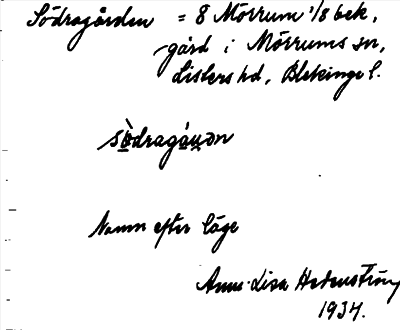 Södragården = 8 Mörrum 1/8 bek,
gård i Mörrums sn,
Listers hd, Blekinge l.
Namn efter läge
Anna-Lisa Hedenström
1934.